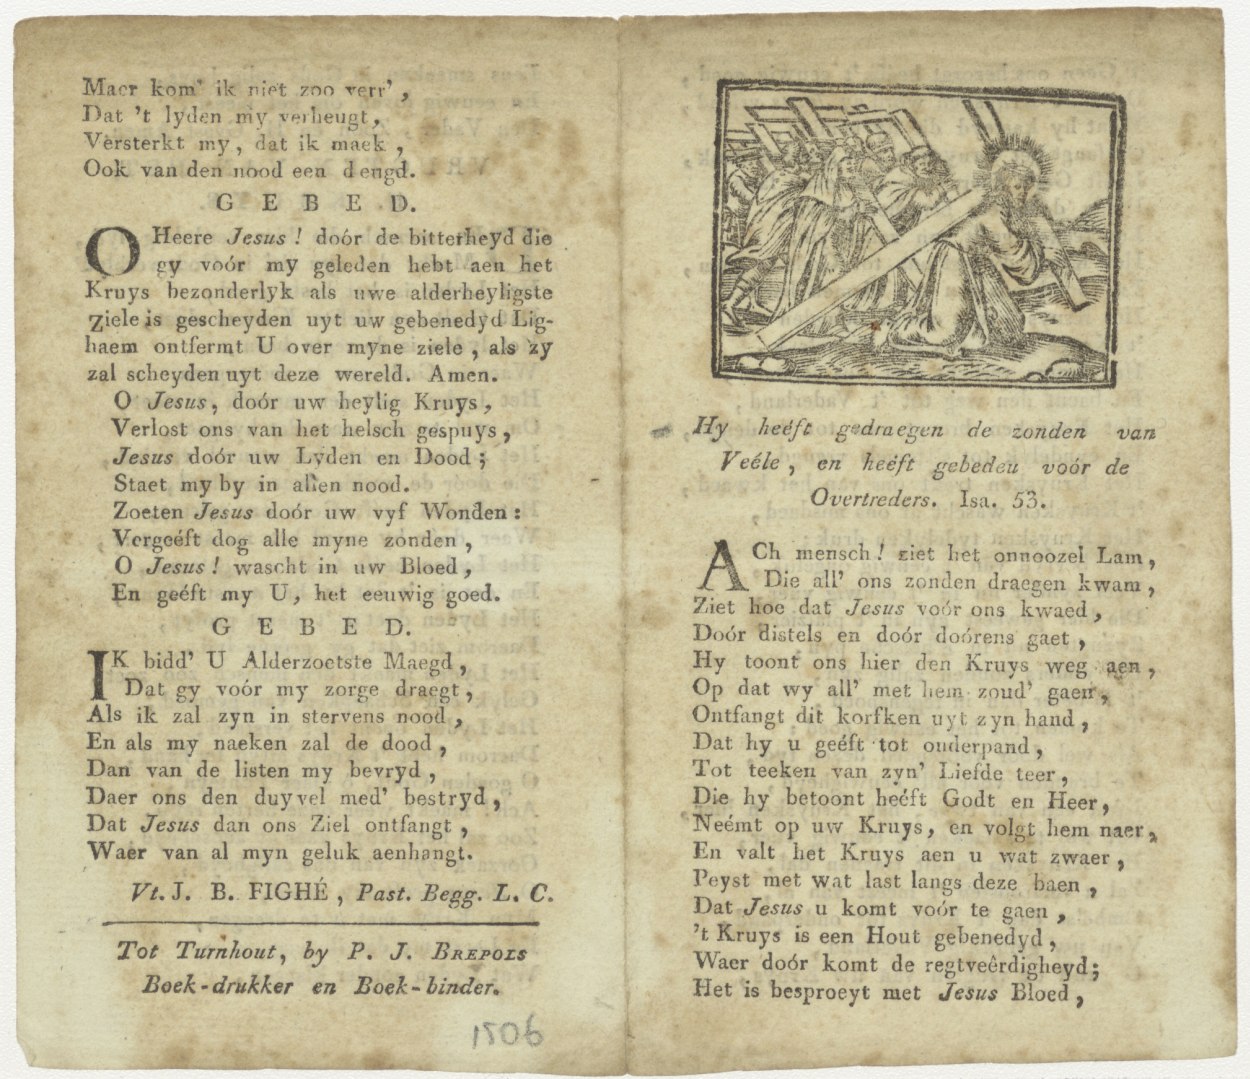 Maer kom' ik niet zoo verr',
Dat 't lyden my verheugt,
Versterkt my, dat ik maek,
Ook van den nood een deugd.
GEBED.
O Heere Jesus! doór de bitterheyd die
gy voór my geleden hebt aen het
Kruys bezonderlyk als uwe alderheyligste
Ziele is gescheyden uyt uw gebenedyd Lig-
haem ontfermt U over myne ziele, als zy
zal scheyden uyt deze wereld. Amen.
O Jesus, doór uw heylig Kruys,
Verlost ons van het helsch gespuys,
Jesus doór uw Lyden en Dood;
Staet my by in allen nood.
Zoeten Jesus doór uw vyf Wonden:
Vergeéft dog alle myne zonden,
O Jesus! wascht in uw Bloed,
En geéft my U, het eeuwig goed.
GEBED.
IK bidd' U Alderzoetste Maegd,
Dat gy voór my zorge draegt,
Als ik zal zyn in stervens nood,
En als my naeken zal de dood,
Dan van de listen my bevryd,
Daer ons den duyvel med' bestryd,
Dat Jesus dan ons Ziel ontfangt,
Waer van al myn geluk aenhangt.
Vt. J. B. FIGHÉ, Past. Begg. L. C.
Tot Turnhout, by P. J. BREPOLS
Boek-drukker en Boek-binder.
1506
Hy heéft gedraegen de zonden van
Veéle, en heéft gebeden voór de
Overtreders. Isa. 53.
ACh mensch! ziet het onnoozel Lam,
Die all' ons zonden draegen kwam,
Ziet hoe dat Jesus voór ons kwaed,
Doór distels en doór doórens gaet,
Hy toont ons hier den Kruys weg aen,
Op dat wy all' met hem zoud' gaen,
Ontfangt dit korfken uyt zyn hand,
Dat hy u geéft tot onderpand,
Tot teeken van zyn' Liefde teer,
Die hy betoont heéft Godt en Heer,
Neémt op uw Kruys, en volgt hem naer,
En valt het Kruys aen u wat zwaer,
Peyst met wat last langs deze baen,
Dat Jesus u komt voór te gaen,
't Kruys is een Hout gebenedyd,
Waer doór komt de regtveêrdigheyd;
Het is besproeyt met Jesus Bloed,